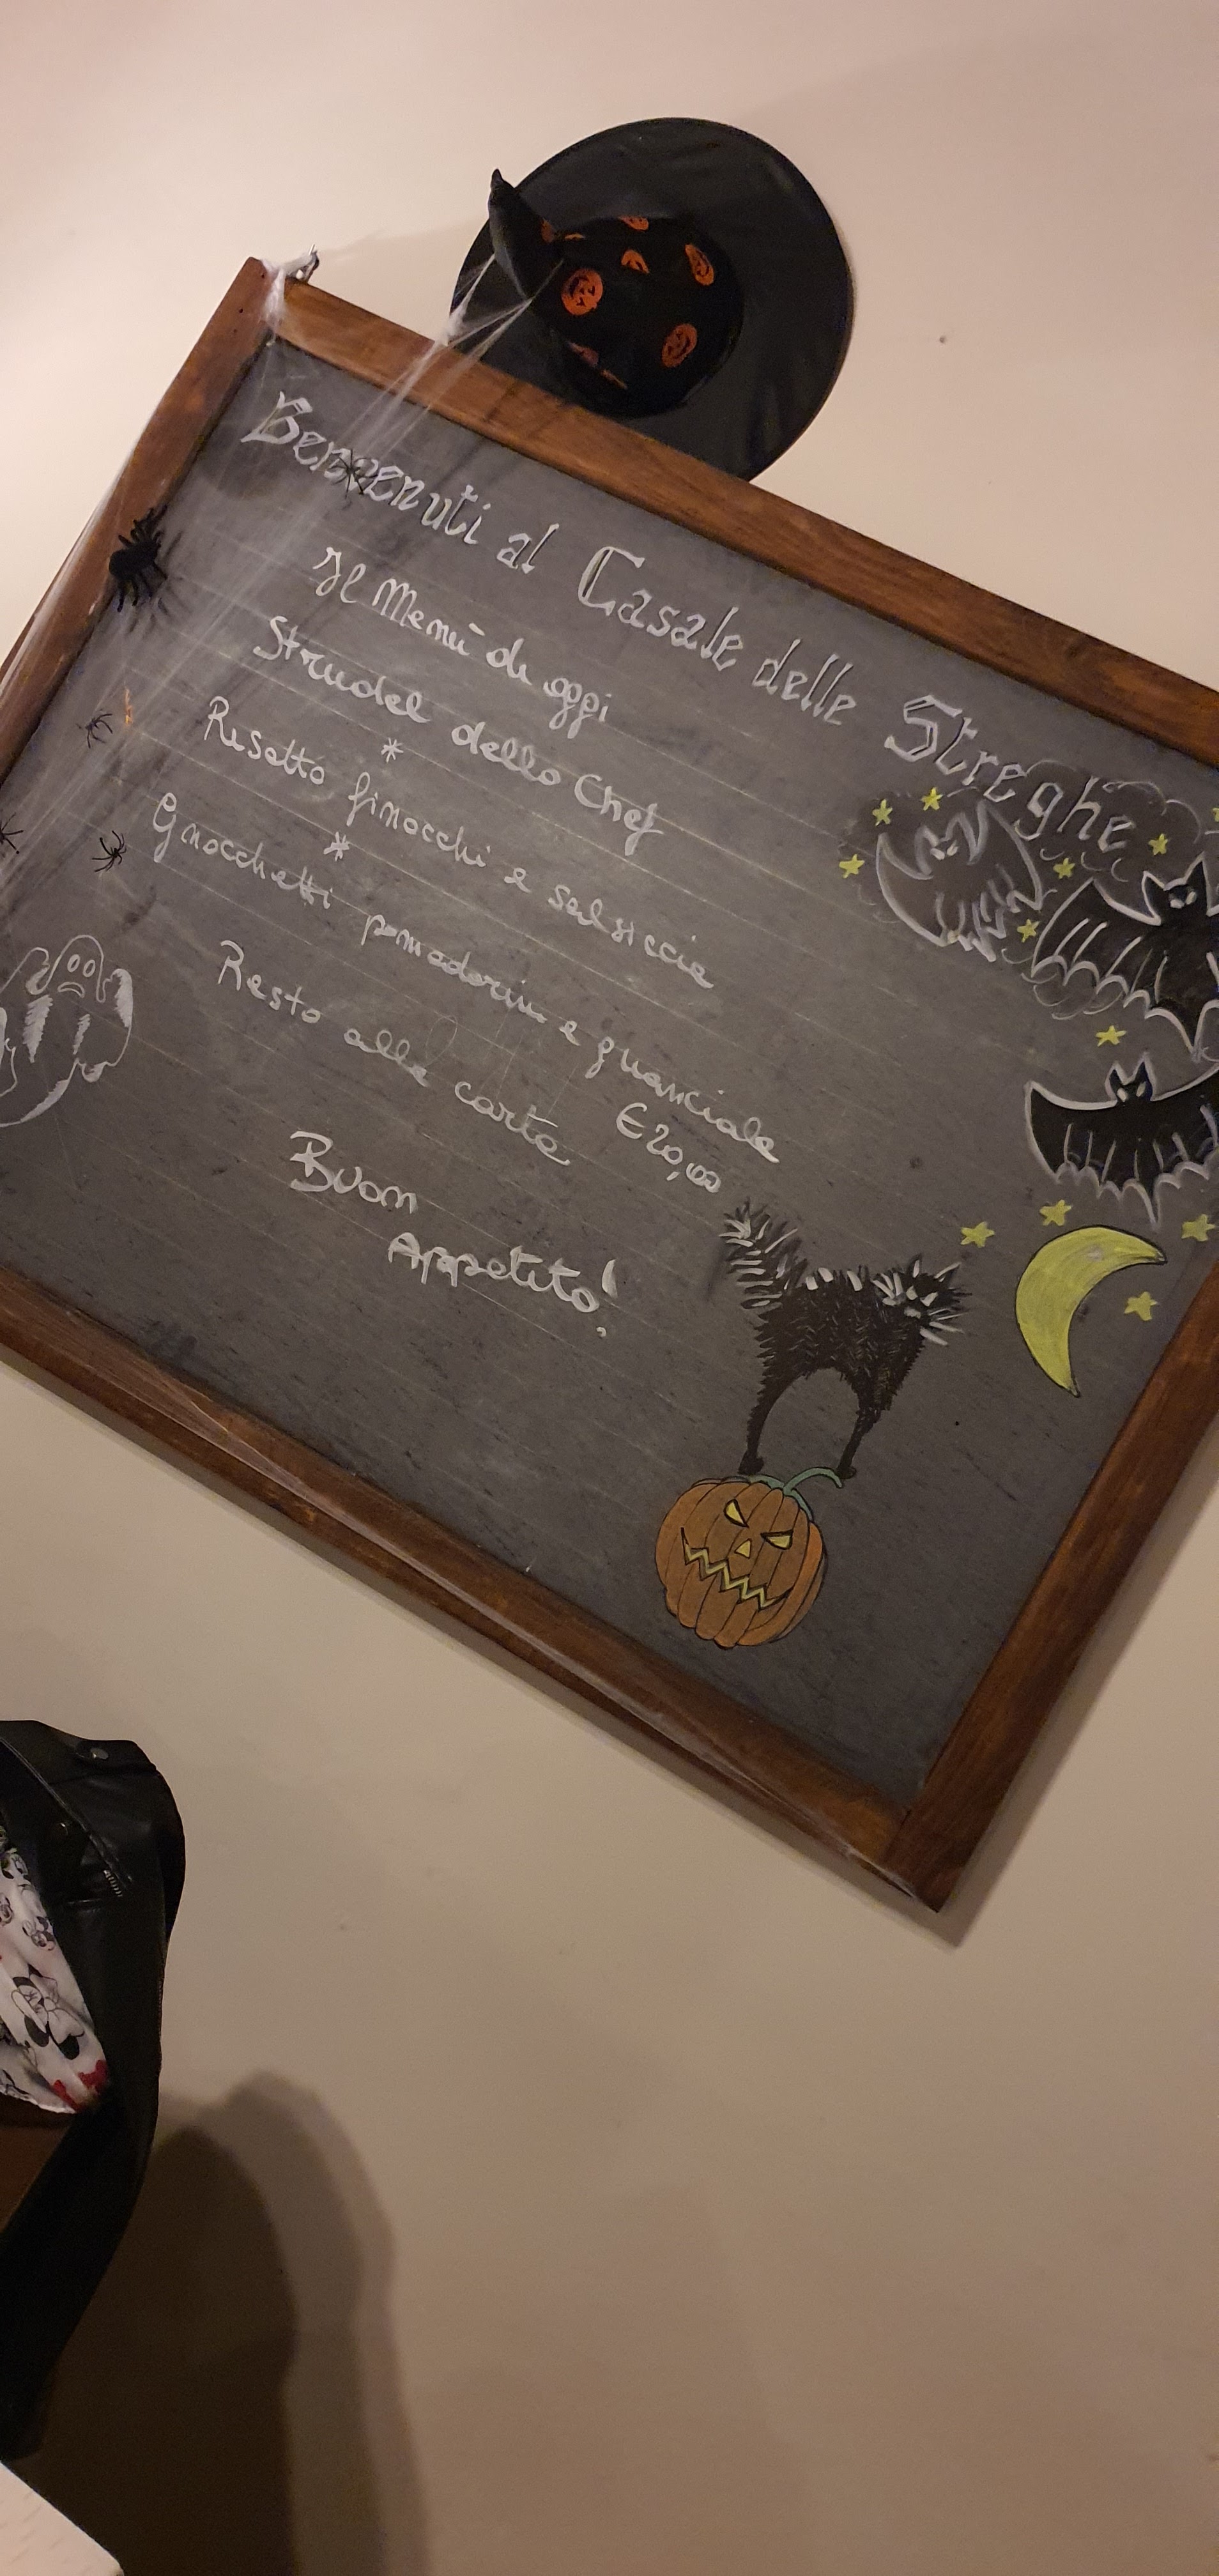 Benvenuti al Casale delle Streghe
Il Menù di oggi
Strudel dello Chef
*
Risotto finocchi e salsiccia
*
Gnocchetti pomodorini e guanciale
€ 20,00
Resto alla carta
Buon
Appetito!